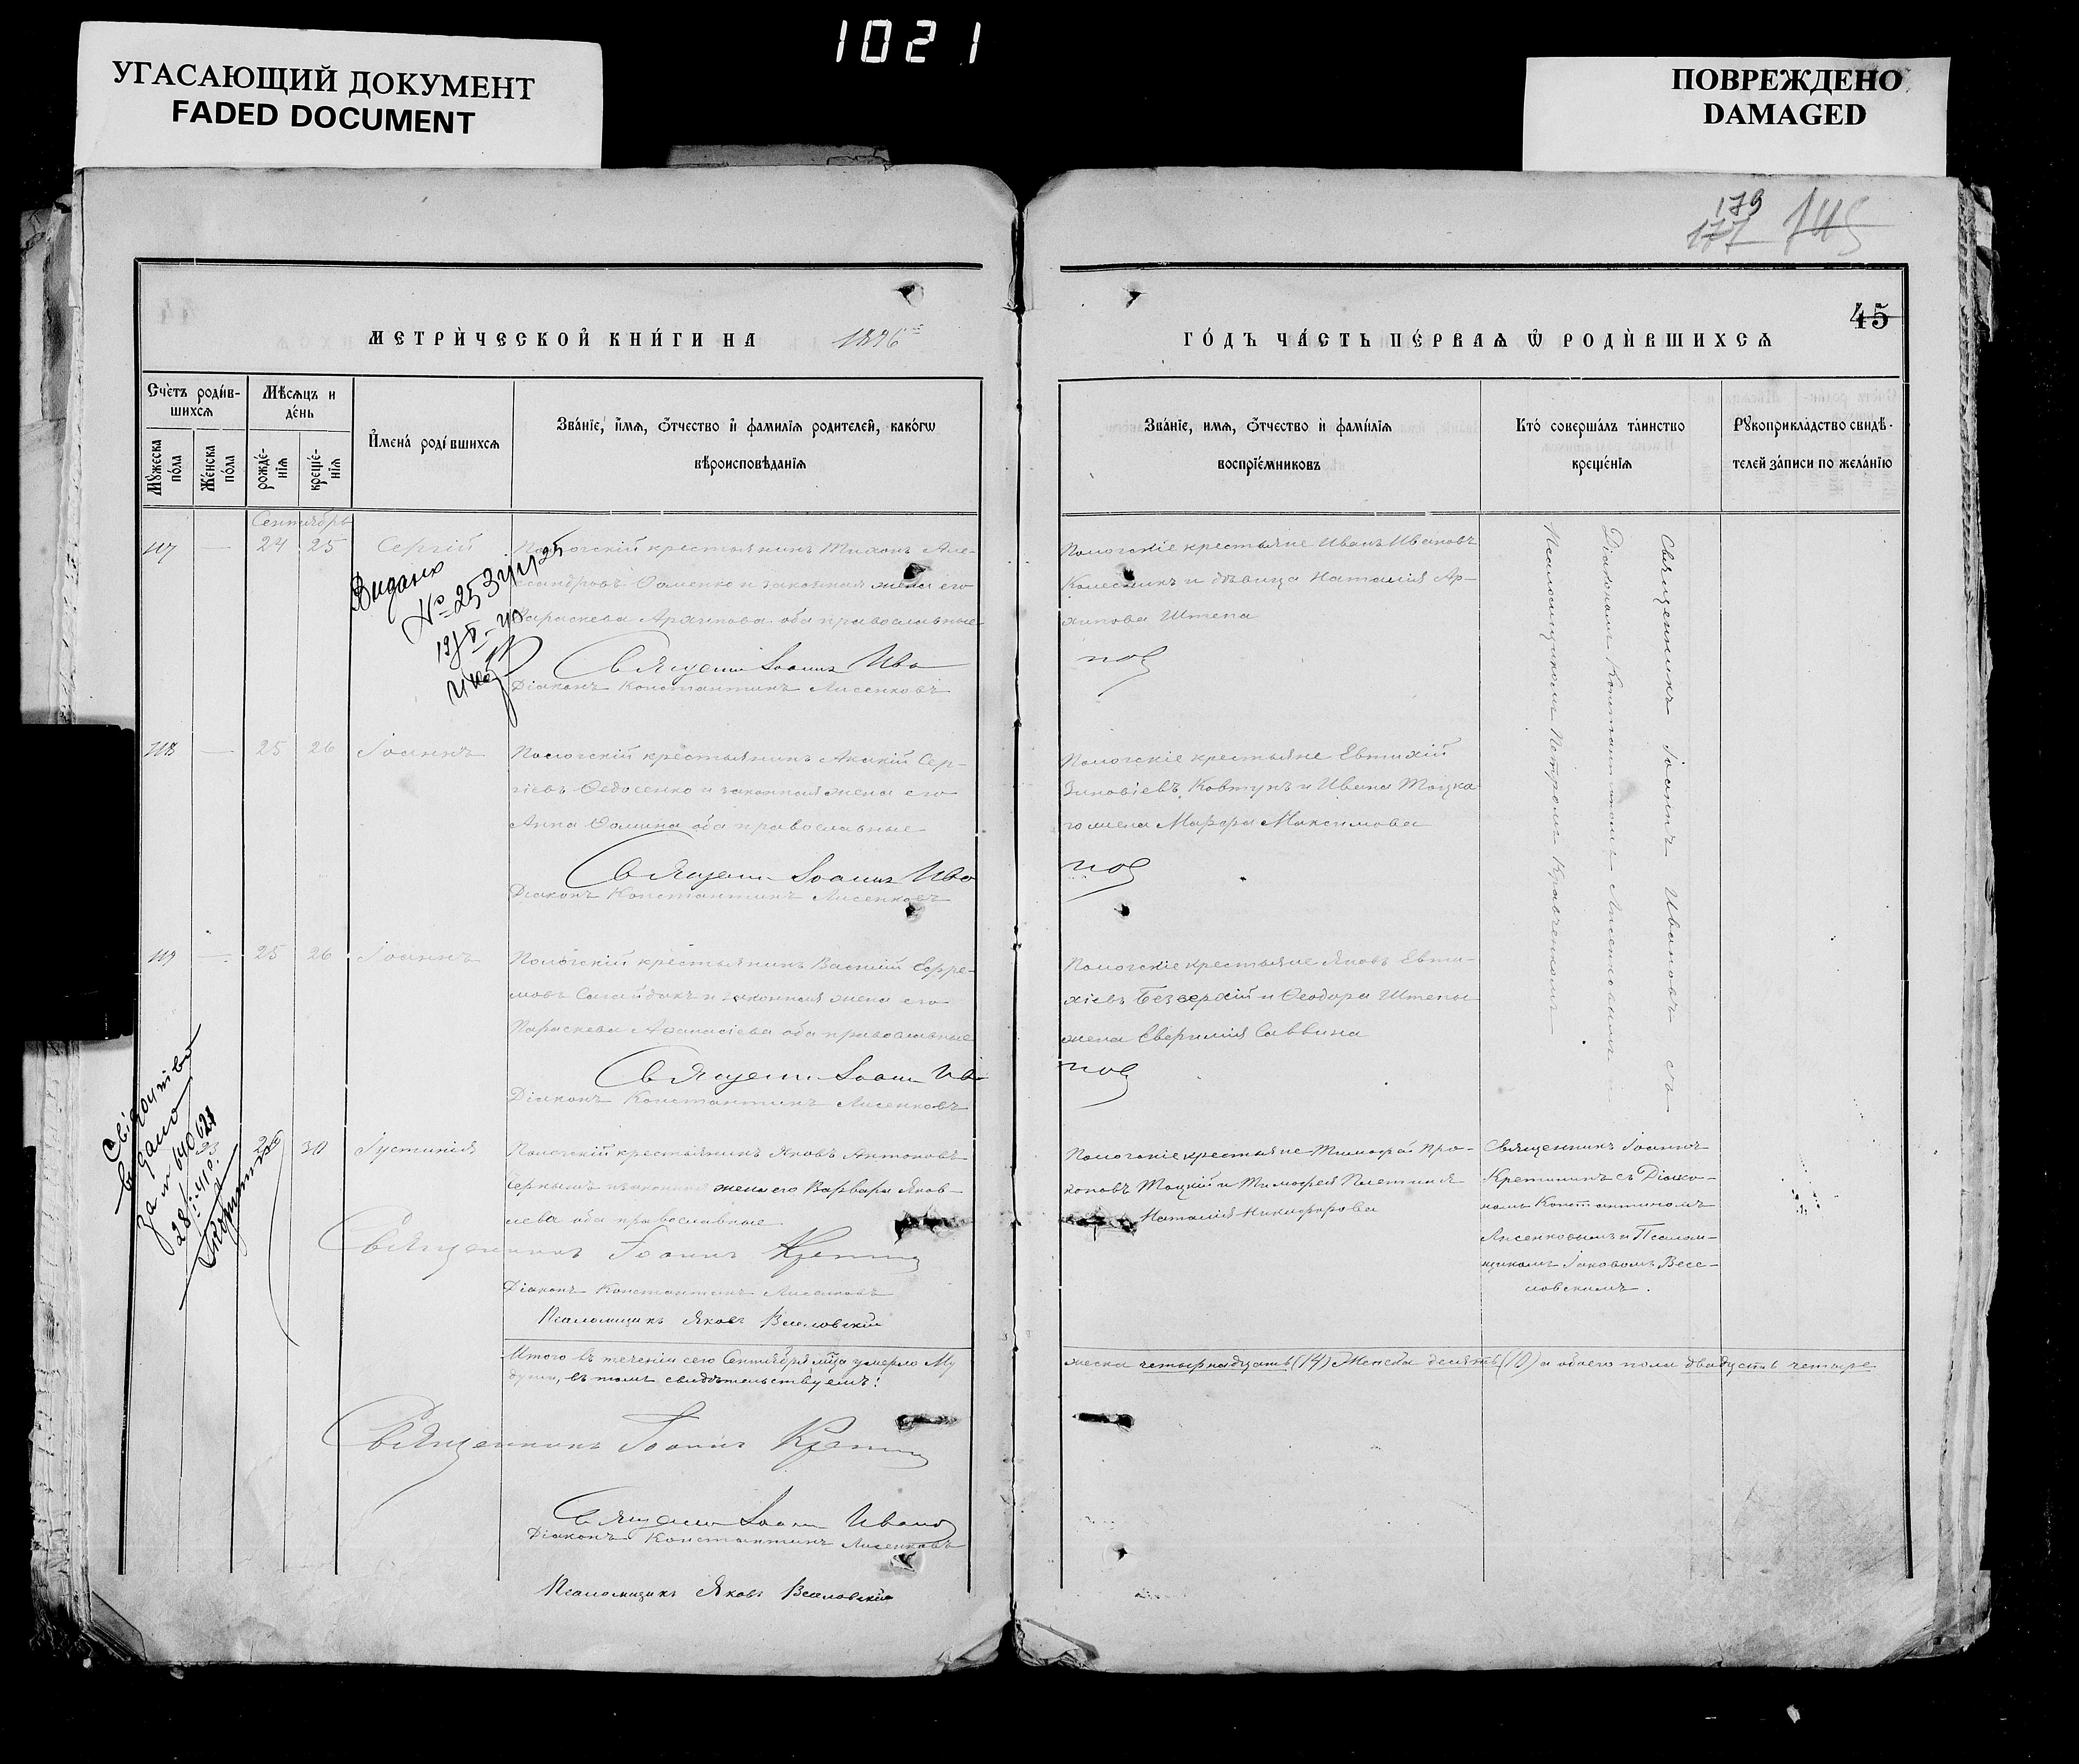 1021
УГАСАЮЩИЙ ДОКУМЕНТ
FADED DOCUMENT
ПОВРЕЖДЕНО
DAMAGED
179
177 145
45
МЕТРИ́ЧЕСКОЙ КНИ́ГИ НА 1896
ГО́ДЪ ЧА́СТЬ ПЕ́РВАѦ Ѿ РОДИ́ВШИХСѦ
Сче́тъ роди́в-
шихсѧ
Мѣ́сѧцъ и
де́нь
Мꙋ́жеска
по́ла
Же́нска
по́ла
рожде́-
нїѧ
креще́-
нїѧ
И҆мена̀ роди́вшихсѧ
Зва́нїе, и҆́мѧ, ѻ҆́тчество и҆ фами́лїѧ родителей, како́гѡ
вѣроисповѣ́данїѧ
Зва́нїе, имѧ, ѻ҆́тчество и҆ фами́лїѧ
воспрїе́мниковъ
Кто̀ соверша́лъ та́инство
креще́нїѧ
Рꙋкоприкла́дство свидѣ́-
телей за́писи по жела́нїю
Сентябрь
117 — 24 25 Сергій
Пологскій крестьянинъ Тихонъ Але-
ксандровъ Фоменко и законная жена его
Параскева Архипова оба православные
Священ Іоаннъ Ива
Діаконъ Константинъ Лисенковъ
Видано
№ 253
Пологскіе крестьяне Иванъ Ивановъ
Колесникъ и дѣвица Наталія Ар-
хипова Штепа
нов
Священникъ Іоаннъ Ивановъ съ
Діакономъ Константиномъ Лисенковымъ и
Псаломщикомъ Петромъ Кравченкомъ
118 — 25 26 Іоаннъ
Пологскій крестьянинъ Акакій Сер-
гіевъ Федосенко и законная жена его
Анна Фомина оба православные
Священ Іоаннъ Ива
Діаконъ Константинъ Лисенковъ
Пологскіе крестьяне Евтихій
Зиновіевъ Ковтунъ и Ивана Тоцка
го жена Марфа Максимова
нов
119 — 25 26 Іоаннъ
Пологскій крестьянинъ Василій Ефре-
мовъ Сагайдакъ и законная жена его
Параскева Афанасіева оба православные
Священ Іоаннъ Ива
Діаконъ Константинъ Лисенковъ
Пологскіе крестьяне Яковъ Евти-
хіевъ Безверхій и Феодора Штепы
жена Евфимія Саввина
нов
Свідоцтво
видано
за № 640621
28
93 26 30 Іустинія
Пологскій крестьянинъ Яковъ Антоновъ
и законная жена его Варвара Яков-
лева оба православные
Священникъ Іоаннъ Крепин
Діаконъ Константинъ Лисенковъ
Псаломщикъ Яковъ Веселовскій
Пологскіе крестьяне Тимофей Про-
коповъ Тоцкій и Тимофея Плетиня
Наталія Никифорова
Священникъ Іоаннъ
Крепининъ съ Діако-
номъ Константиномъ
Лисенковымъ и Псалом-
щикомъ Іаковомъ Весе-
ловскимъ.
Итого въ теченіи сего Сентября мца умерло Му
жеска четырнадцать (14) Женска десять (10) а обоего пола двадцать четыре
души, въ томъ свидѣтельствуемъ:
Священникъ Іоаннъ Крепин
Священ Іоаннъ Иванов
Діаконъ Константинъ Лисенковъ
Псаломщикъ Яковъ Веселовскій